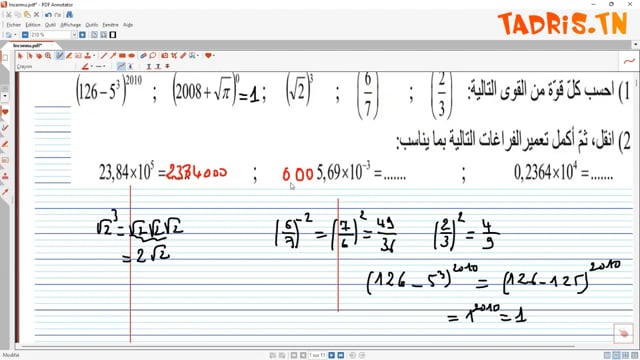 Incornu.pdf* - PDF Annotator
TADRIS.TN
Fichier Edition Affichage Insertion Outils Fenêtre Aide
210 %
Incornu.pdf*
Crayon
1) احسب كلّ قوّة من القوى التالية: (2/3)² ; (6/7)⁻² ; (√2)³ ; (2008+√π)⁰=1 ; (126−5³)²⁰¹⁰
2) انقل، ثمّ أكمل تعمير الفراغات التالية بما يناسب:
23,84×10⁵ =2384000 ; 0005,69×10⁻³ =....... ; 0,2364×10⁴ =.......
√2³ = √2√2√2 (6/7)⁻² = (7/6)² = 49/36 (2/3)² = 4/9
= 2√2
(126 − 5³)²⁰¹⁰ = (126−125)²⁰¹⁰
= 1²⁰¹⁰ = 1